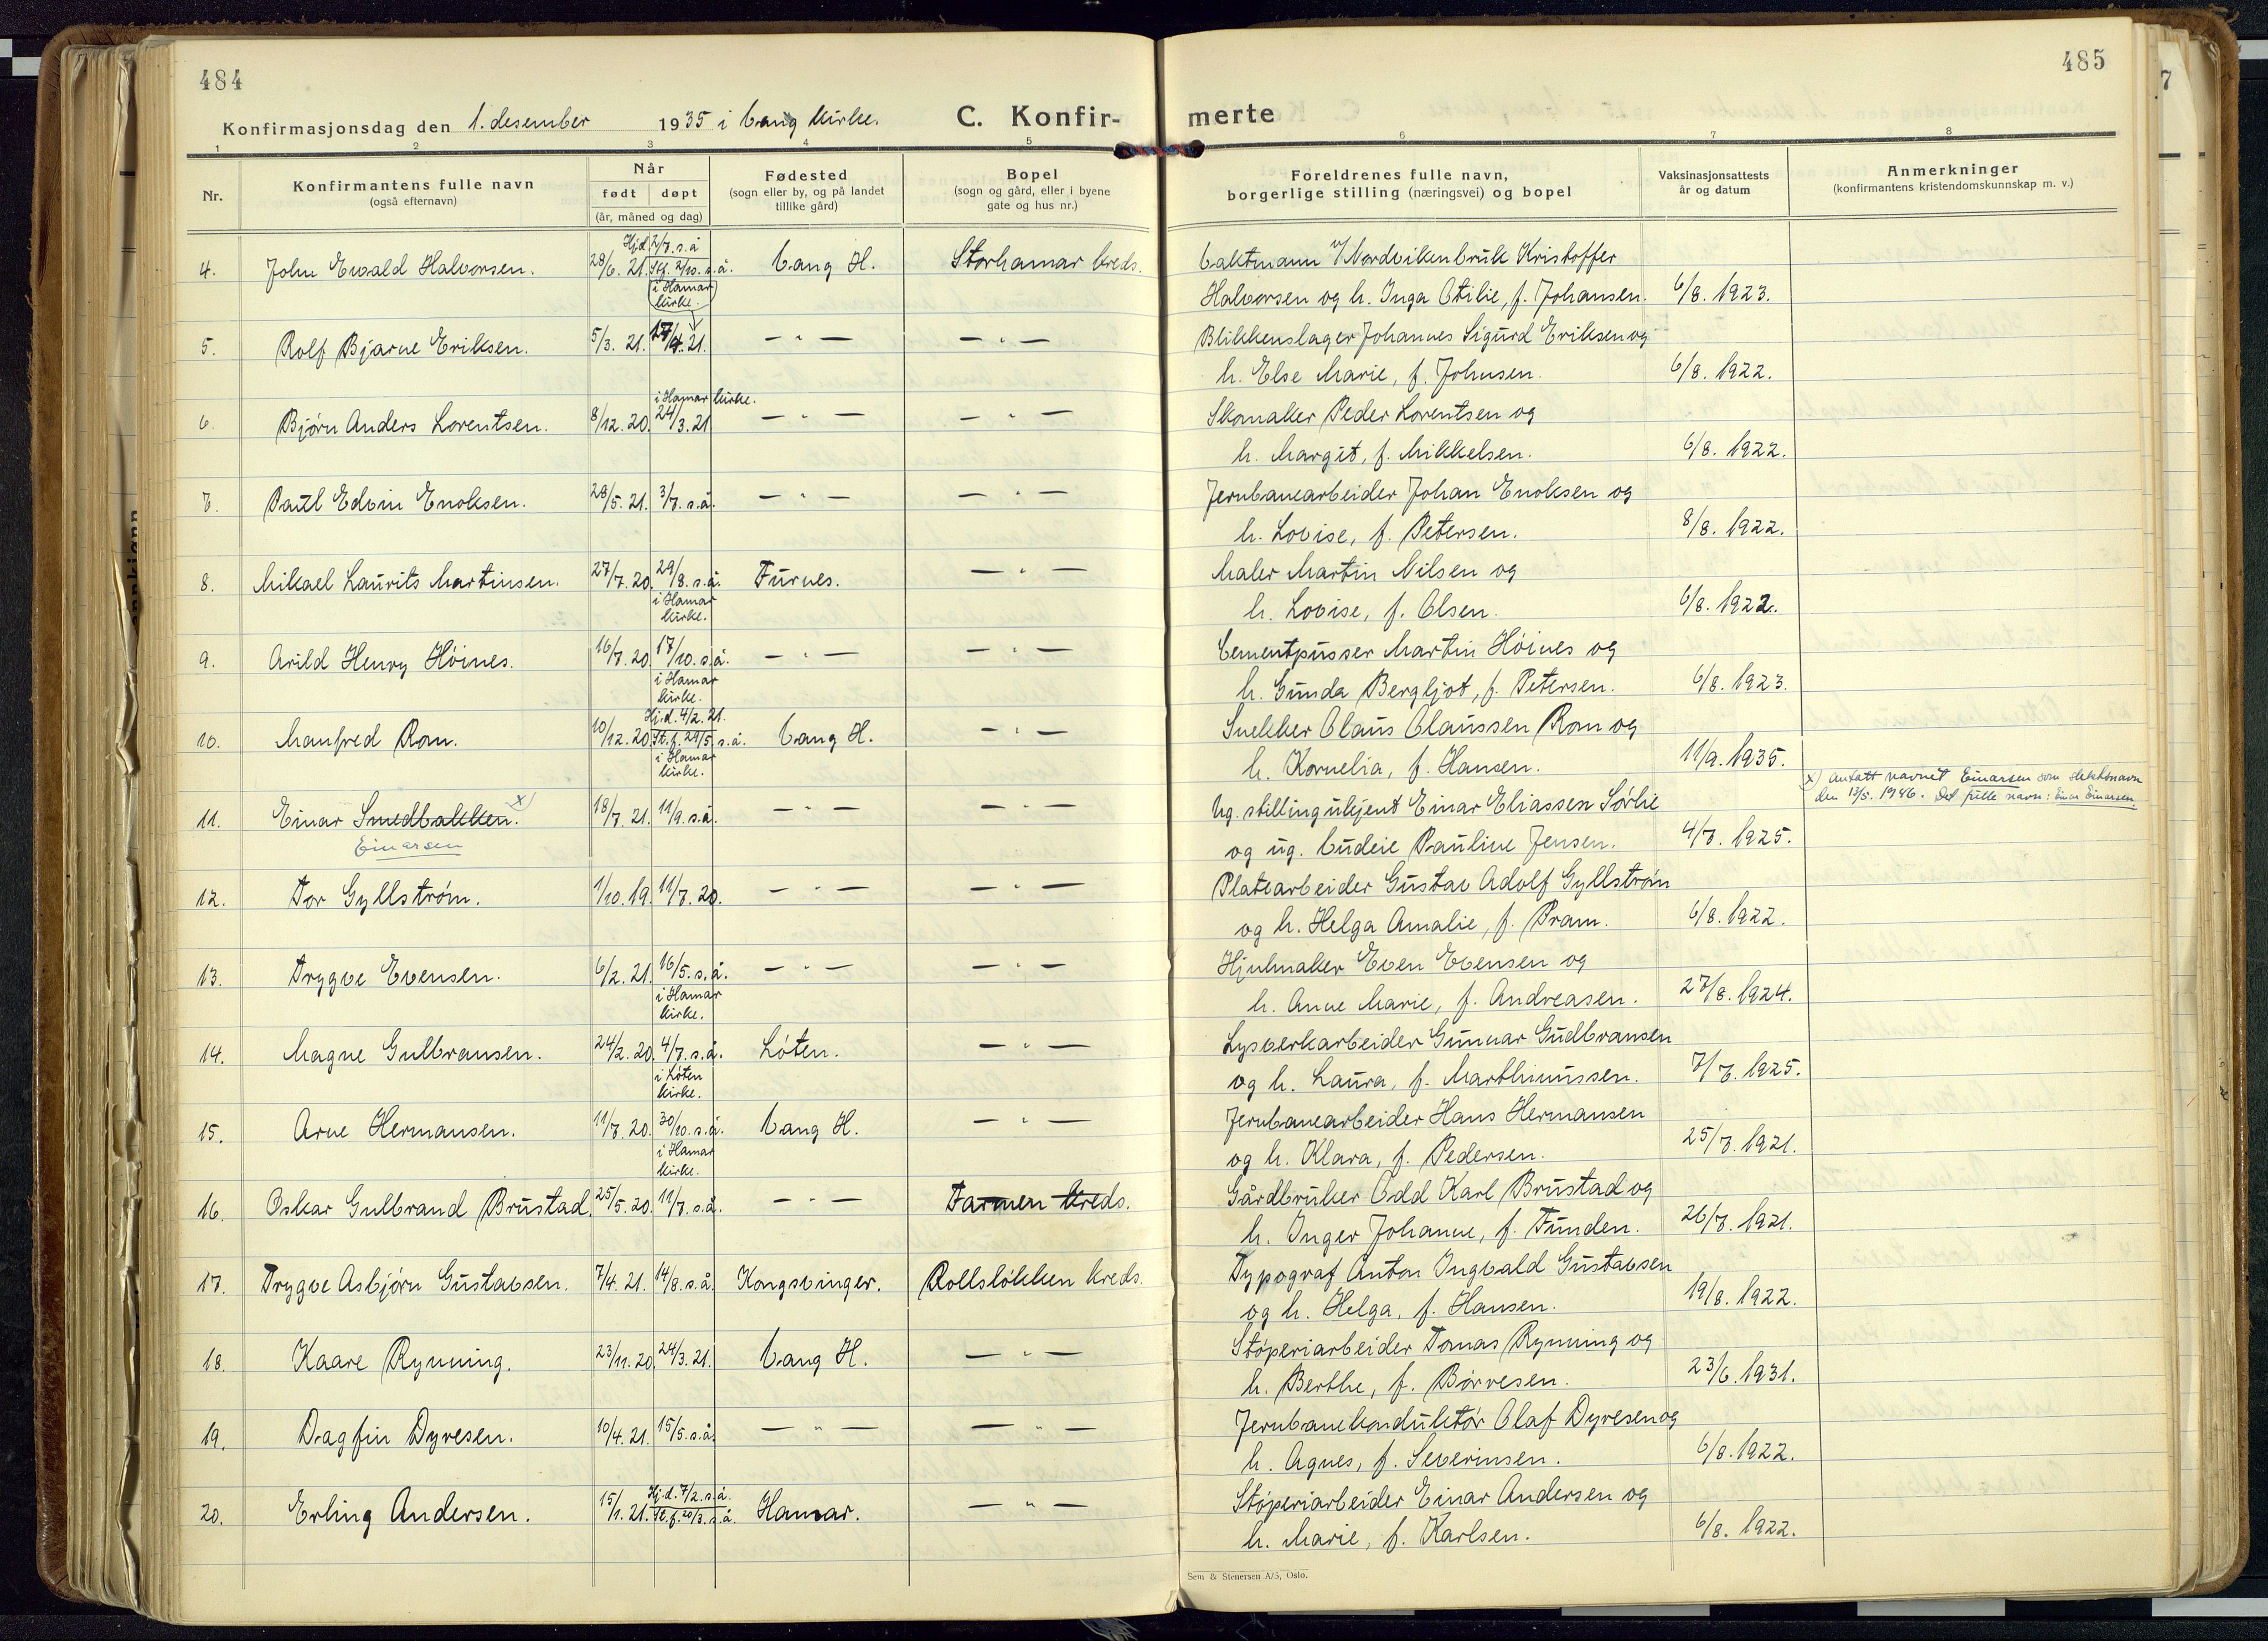 484
Konfirmasjonsdag den 1. desember 1935 i Vang kirke.
C. Konfir-
1 2 3 4 5
Nr.
Konfirmantens fulle navn
(også efternavn)
Når
født døpt
(år, måned og dag)
Fødested
(sogn eller by, og på landet
tillike gård)
Bopel
(sogn og gård, eller i byene
gate og hus nr.)
Hj.d. 2/7. s.å.
4. John Ewald Halvorsen. 28/6. 21. St.f. 2/10. s.å. Vang H. Storhamar kreds.
(i Hamar
kirke.)
5. Rolf Bjarne Eriksen. 5/3. 21. 17/4. 21. — " — — " —
i Hamar kirke.
6. Bjørn Anders Lorentsen. 8/12. 20. 24/3. 21 — " — — " —
7. Paul Edvin Enoksen. 28/5. 21. 3/7. s.å. — " — — " —
8. Mikael Laurits Martinsen. 27/7. 20. 29/8. s.å. Furnes. — " —
i Hamar
kirke.
9. Arild Henry Höines. 16/7. 20. 17/10. s.å. — " — — " —
i Hamar
kirke.
Hj.d. 4/2. 21.
10. Manfred Ron. 10/12. 20. St.f. 29/5 s.å. Vang H. — " —
i Hamar
kirke.
11. Einar Smedbakken. x) 18/7. 21. 11/9. s.å. — " — — " —
Einarsen
12. Tor Gyllström. 1/10. 19. 11/7. 20. — " — — " —
13. Trygve Evensen. 6/2. 21. 16/5. s.å. — " — — " —
i Hamar
kirke.
14. Magne Gulbransen. 24/2. 20. 4/7. s.å. Löten. — " —
i Löten
kirke.
15. Arne Hermansen. 11/7. 20. 30/10. s.å. Vang H. — " —
i Hamar
kirke.
16. Oskar Gulbrand Brustad. 25/5. 20. 11/7. s.å. — " — Farmen kreds.
17. Trygve Asbjörn Gustavsen. 7/4. 21. 14/8. s.å. Kongsvinger. Rollslökken kreds.
18. Kaare Rynning. 23/11. 20. 24/3. 21. Vang H. — " —
19. Dagfin Dyresen. 10/4. 21. 15/5. s.å. — " — — " —
Hj.d. 7/2. s.å.
20. Erling Andersen. 15/1. 21. St.f. 20/3. s.å. Hamar. — " —
485
merte
6 7 8
Foreldrenes fulle navn,
borgerlige stilling (næringsvei) og bopel
Vaksinasjonsattests
år og datum
Anmerkninger
(konfirmantens kristendomskunnskap m. v.)
Vaktmann v/ Nordvikenbruk Kristoffer
Halvorsen og h. Inga Otilie, f. Johansen. 6/8. 1923.
Blikkenslager Johannes Sigurd Eriksen og
h. Else Marie, f. Johnsen. 6/8. 1922.
Skomaker Peder Lorentsen og
h. Margit, f. Mikkelsen. 6/8. 1922.
Jernbanearbeider Johan Enoksen og
h. Lovise, f. Petersen. 8/8. 1922.
Maler Martin Nilsen og
h. Lovise, f. Olsen. 6/8. 1922.
Cementpusser Martin Höines og
h. Gunda Bergljot, f. Petersen. 6/8. 1923.
Snekker Claus Claussen Ron og
h. Kornelia, f. Hansen. 11/9. 1935.
x) Antatt navnet Einarsen som slektsnavn
den 13/5. 1946. Det fulle navn: Einar Einarsen.
Ug. stilling ukjent Einar Eliassen Sörlie
og ug. budeie Pauline Jensen. 4/7. 1925.
Platearbeider Gustav Adolf Gyllström
og h. Helga Amalie, f. Pram. 6/8. 1922.
Hjulmaker Even Evensen og
h. Anne Marie, f. Andreasen. 27/8. 1924.
Lysverkarbeider Gunnar Gudbransen
og h. Laura, f. Marthinussen. 7/7. 1925.
Jernbanearbeider Hans Hermansen
og h. Klara, f. Pedersen. 25/7. 1921.
Gårdbruker Odd Karl Brustad og
h. Inger Johanne, f. Funden. 26/7. 1921.
Typograf Anton Ingvald Gustavsen
og h. Helga, f. Hansen. 19/8. 1922.
Støperiarbeider Tomas Rynning og
h. Berthe, f. Börresen. 23/6. 1931.
Jernbanekonduktör Olaf Dyresen og
h. Agnes, f. Severinsen. 6/8. 1922.
Støperiarbeider Einar Andersen og
h. Marie, f. Karlsen. 6/8. 1922.
Sem & Stenersen A/S, Oslo.